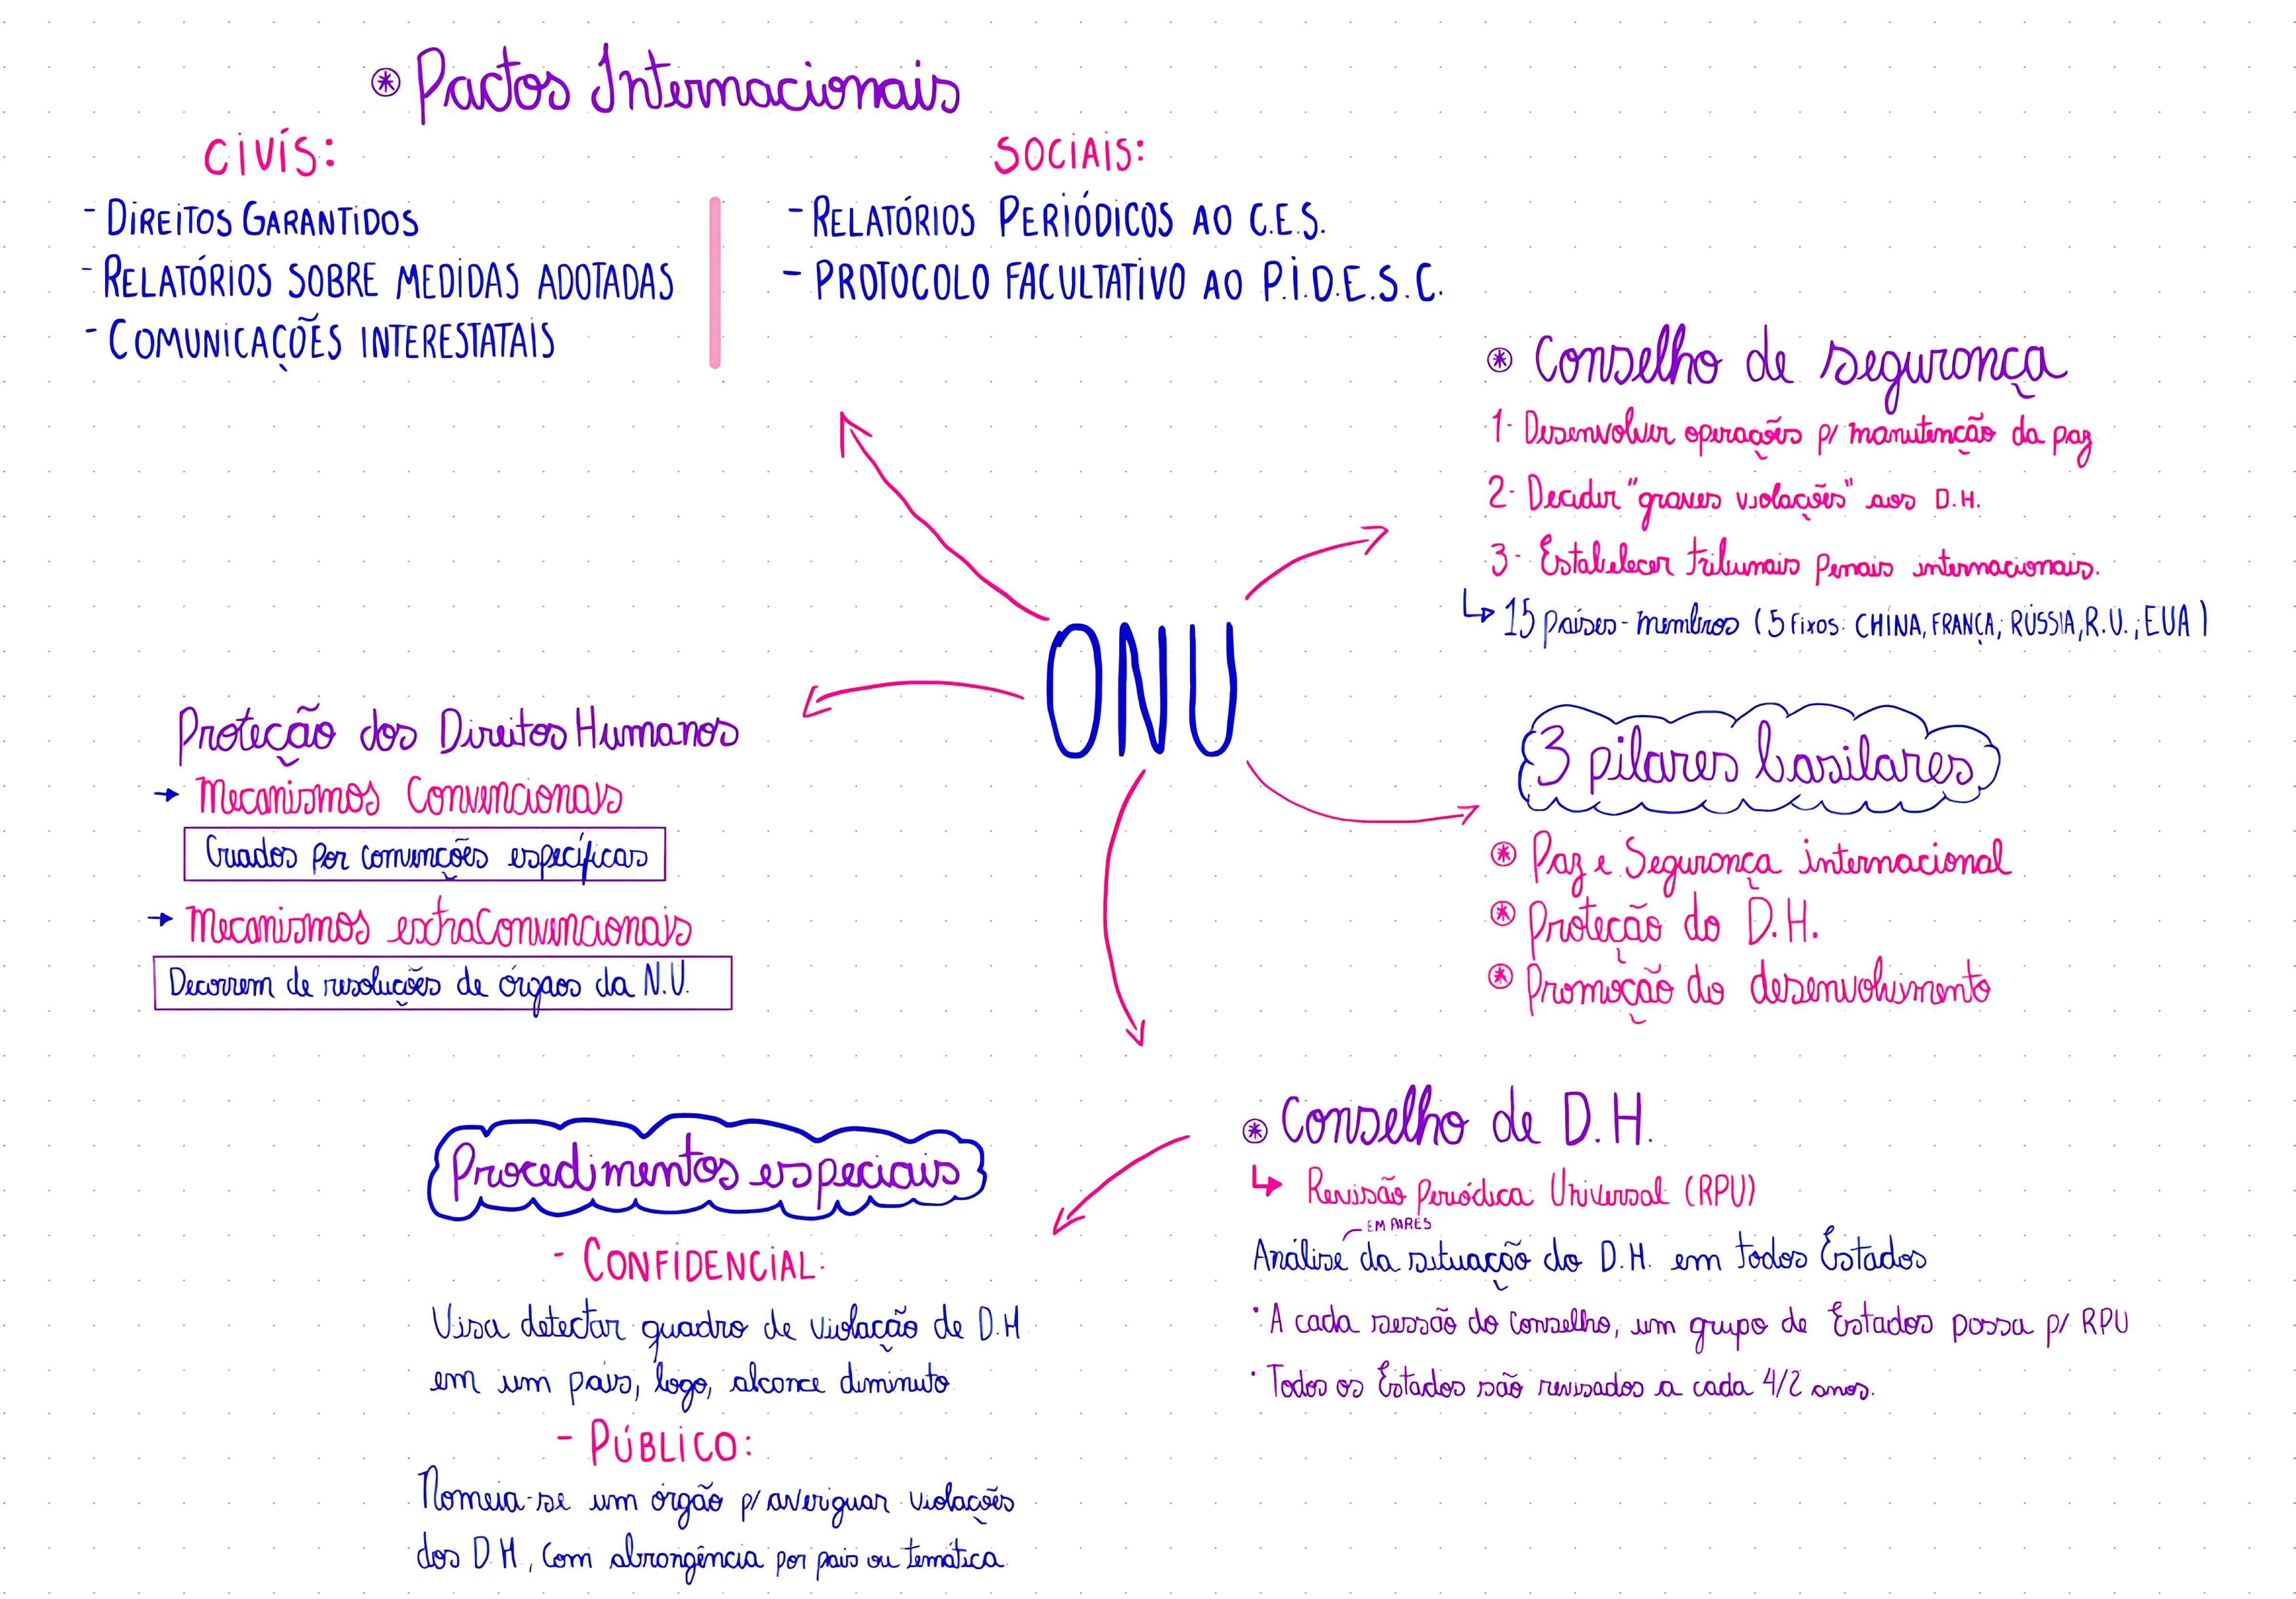 Pactos Internacionais
CIVÍS:
- DIREITOS GARANTIDOS
- RELATÓRIOS SOBRE MEDIDAS ADOTADAS
- COMUNICAÇÕES INTERESTATAIS
SOCIAIS:
- RELATÓRIOS PERIÓDICOS AO C.E.S.
- PROTOCOLO FACULTATIVO AO P.I.D.E.S.C.
Conselho de segurança
1- Desenvolver operações p/ manutenção da paz
2- Decidir "graves violações" aos D.H.
3- Estabelecer tribunais Penais internacionais.
15 países-membros (5 Fixos: CHINA, FRANÇA; RÚSSIA, R.U.; EUA)
ONU
Proteção dos Direitos Humanos
Mecanismos Convencionais
Criados por convenções específicas
Mecanismos extraConvencionais
Decorrem de resoluções de órgãos da N.U.
3 pilares basilares
Paz e Segurança internacional
Proteção do D.H.
Promoção do desenvolvimento
Conselho de D.H.
Revisão Periódica Universal (RPU)
EM PARES
Análise da situação do D.H. em todos Estados
· A cada sessão do Conselho, um grupo de Estados passa p/ RPU
· Todos os Estados são revisados a cada 4/2 anos.
Procedimentos especiais
- CONFIDENCIAL:
Visa detectar quadro de violação de D.H
em um país, logo, alcance diminuto
- PÚBLICO:
Nomeia-se um órgão p/ averiguar violações
dos D.H, com abrangência por país ou temática